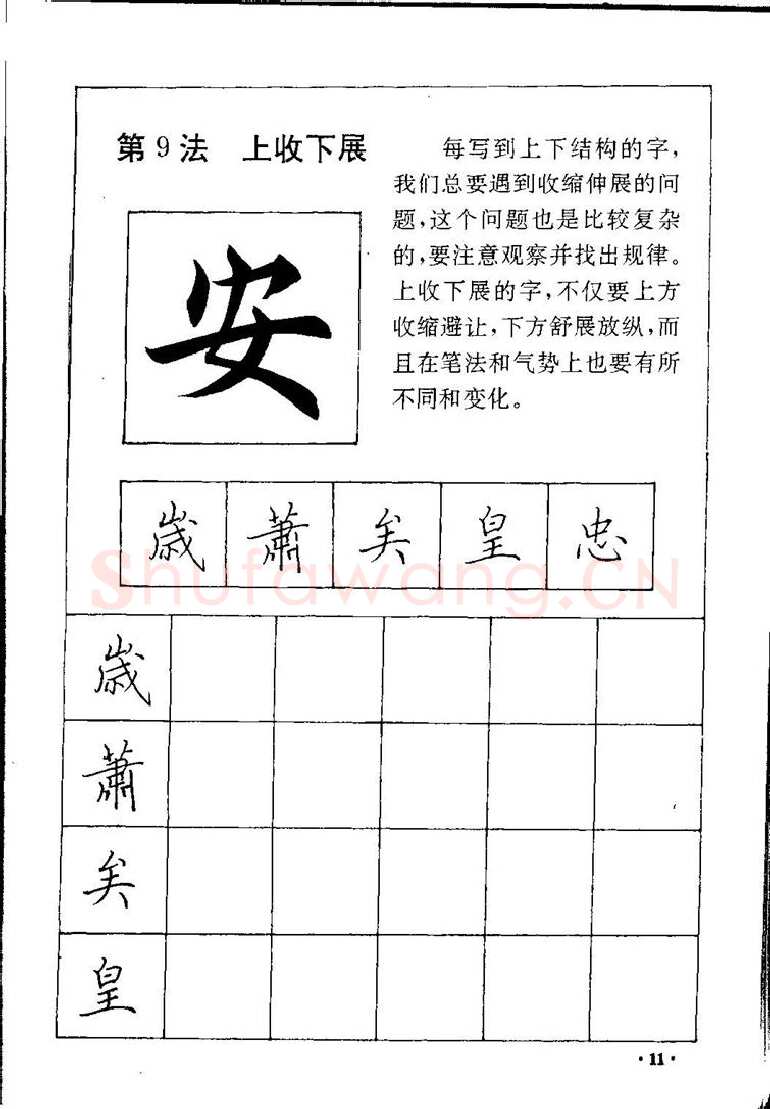 第9法 上收下展
每写到上下结构的字，
我们总要遇到收缩伸展的问
题，这个问题也是比较复杂
的，要注意观察并找出规律。
上收下展的字，不仅要上方
收缩避让，下方舒展放纵，而
且在笔法和气势上也要有所
不同和变化。
安
歲 蕭 矣 皇 忠
Shufawang.CN
歲
蕭
矣
皇
·11·